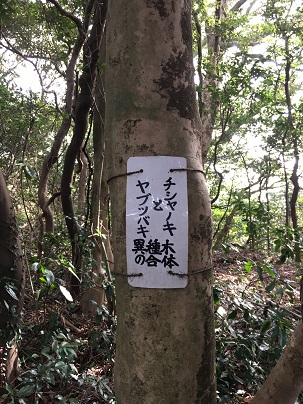 チシヤノキ
と
ヤブツバキ
異種木
の合体